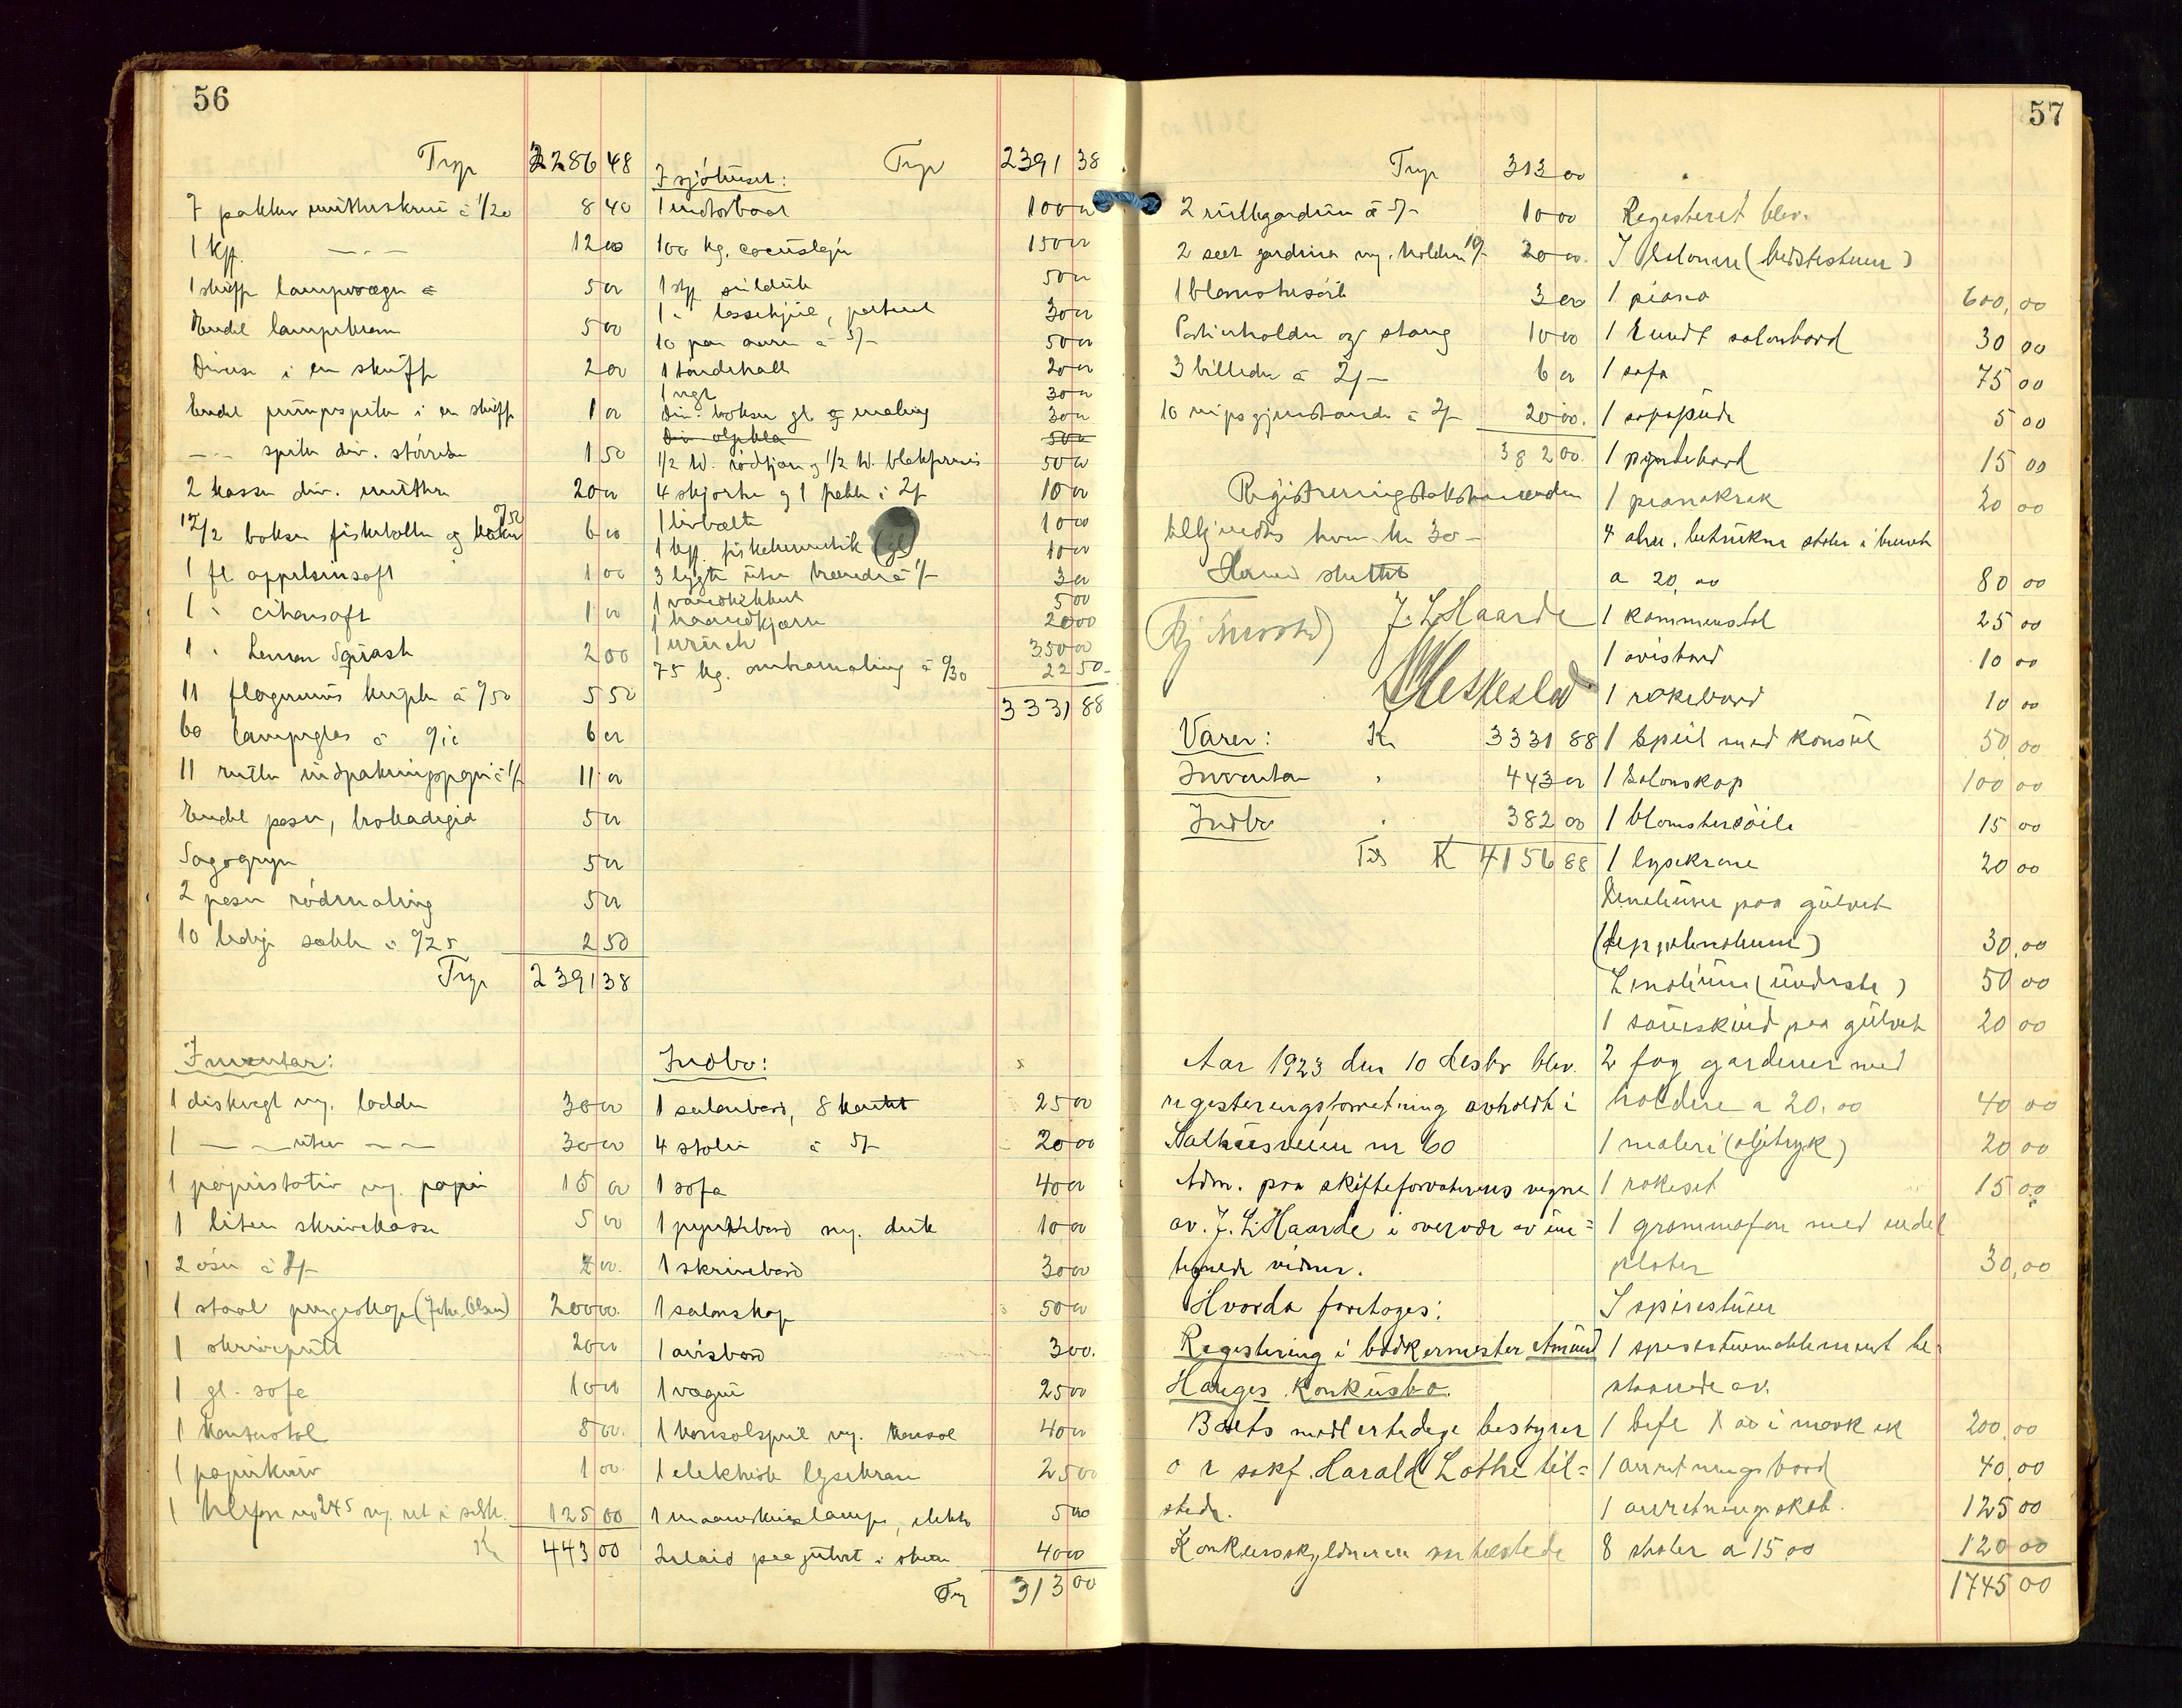 56
Trp 2286 48
7 pakker mutterskrue à 1/20 8 40
1 kp. — " — 12 00
1 skuff lampevæger 5 00
Endel lampebræn 5 00
Diverse i en skuff 2 00
Endel pumpespiker i en skuff 1 00
— — spiker div. størrelse 1 50
2 kasser div. muttere 20 00
12/2 boksen fiskeboller og kaker 0/50 6 00
1 fl appelsinsaft 1 00
1 " citronsaft 1 00
1 " Lemon Squash 2 00
11 flagermus kupler à 0/50 5 50
60 lampeglas à 0/10 6 00
11 ruller indpakningspapir à 1/- 11 00
Endel poser, brokadegid 5 00
Sagogryn 5 00
2 poser rødmaling 5 00
10 ledige sække à 0/25 2 50
Trp 2391 38
Inventar:
1 diskvegt m. lodder 30 00
1 — " — uten — " — 30 00
1 papirstativ m. papir 15 00
1 liten skrivekasse 5 00
2 øser à 1/- 2 00
1 staal pengeskap (Johs. Olsen) 200 00
1 skrivepult 20 00
1 gl. sofa 10 00
1 kontorstol 5 00
1 papirkurv 1 00
1 telefon no 245 m. ret i selsk. 125 00
Kr 443 00
Trp 2391 38
I sjøhuset:
1 motorbaat 100 00
100 kg. cocuslejn 150 00
1 stp. sildeuk 50 00
1 " lossehjul, patent 30 00
10 par aarer à 5/- 50 00
1 tøndehall 20 00
1 vegt 30 00
Div. bokser gl. og maling 30 00
Div. oljeklær 50 00
1/2 td. rødtjære og 1/2 td. blakfernis 50 00
4 skjorter og 1 pakke i 2/- 10 00
1 livbælte 10 00
1 kp. fiskehermetik (gl) 10 00
3 lygter uten brændere à 1/- 3 00
1 vandslekker 5 00
1 haandkjærre 20 00
1 winch 350 00
75 kg. ombramaling à 0/30 22 50
3331 88
Indbo:
1 salonbord, 8 kantet 25 00
4 stoler à 5/- 20 00
1 sofa 40 00
1 pyntebord m. duk 10 00
1 skrivebord 30 00
1 salonskap 50 00
1 avisbord 3 00
1 vaggeur 25 00
1 konsolspeil m. konsol 40 00
1 elektrisk lysekrone 25 00
1 maaneskinslampe, elektr 5 00
Inlaid paa gulvet i stuen 40 00
Trp 313 00
57
Trp 313 00
2 rullegardiner à 5/- 10 00
2 sett gardiner m. holdere 10/- 20 00
1 blomstersøile 3 00
Portierholder og stang 10 00
3 billeder à 2/- 6 00
10 nipsgjenstande à 2/- 20 00
382 00
Registreringstakstmændene
tilkjendes hver kr 30 -
Herved sluttet
J. L. Haarde
Varer: Kr 3331 88
Inventar " 443 00
Indbo " 382 00
Tils K 4156 88
Aar 1923 den 10 desbr blev.
registeringsforretning avholdt i
Salhusveien nr 60
Adm. paa skifteforvalterens vegne
av. J. L. Haarde i overvær av un=
tegnede vidner.
Hvorda foretoges:
Registering i bødkermester Amund
Hauges Konkursbo.
Boets midlertidige bestyrer
o r sakf. Harald Lothe til=
stede.
Konkursskyldneren var tilstede
Registeret blev.
I Salonen (bedstestuen)
1 piano 600,00
1 Rundt salonbord 30 00
1 sofa 75 00
1 sofapude 5 00
1 pyntebord 15 00
1 pianokrak 20 00
4 alm. betrukne stoler i brunt
a 20,00 80 00
1 kammerstol 25 00
1 avisbord 10 00
1 røkebord 10 00
1 speil med konsul 50 00
1 Salonskap 100 00
1 blomstersøile 15 00
1 lysekrone 20 00
Linolium paa gulvet
(teppelinoleum) 30,00
Linolium (underste) 50 00
1 saueskind paa gulvet 20 00
2 fag gardener med
holdere a 20.00 40 00
1 maleri (oljetryk) 20 00
1 røkeset 15 00
1 grammofon med endel
plater 30,00
I spisestuen
1 spisestuemøblement be-
staaende av.
1 bufe i mørk ek 200,00
1 anretningsbord 40,00
1 anretningsskab. 125 00
8 stoler a 15 00 120 00
1745 00